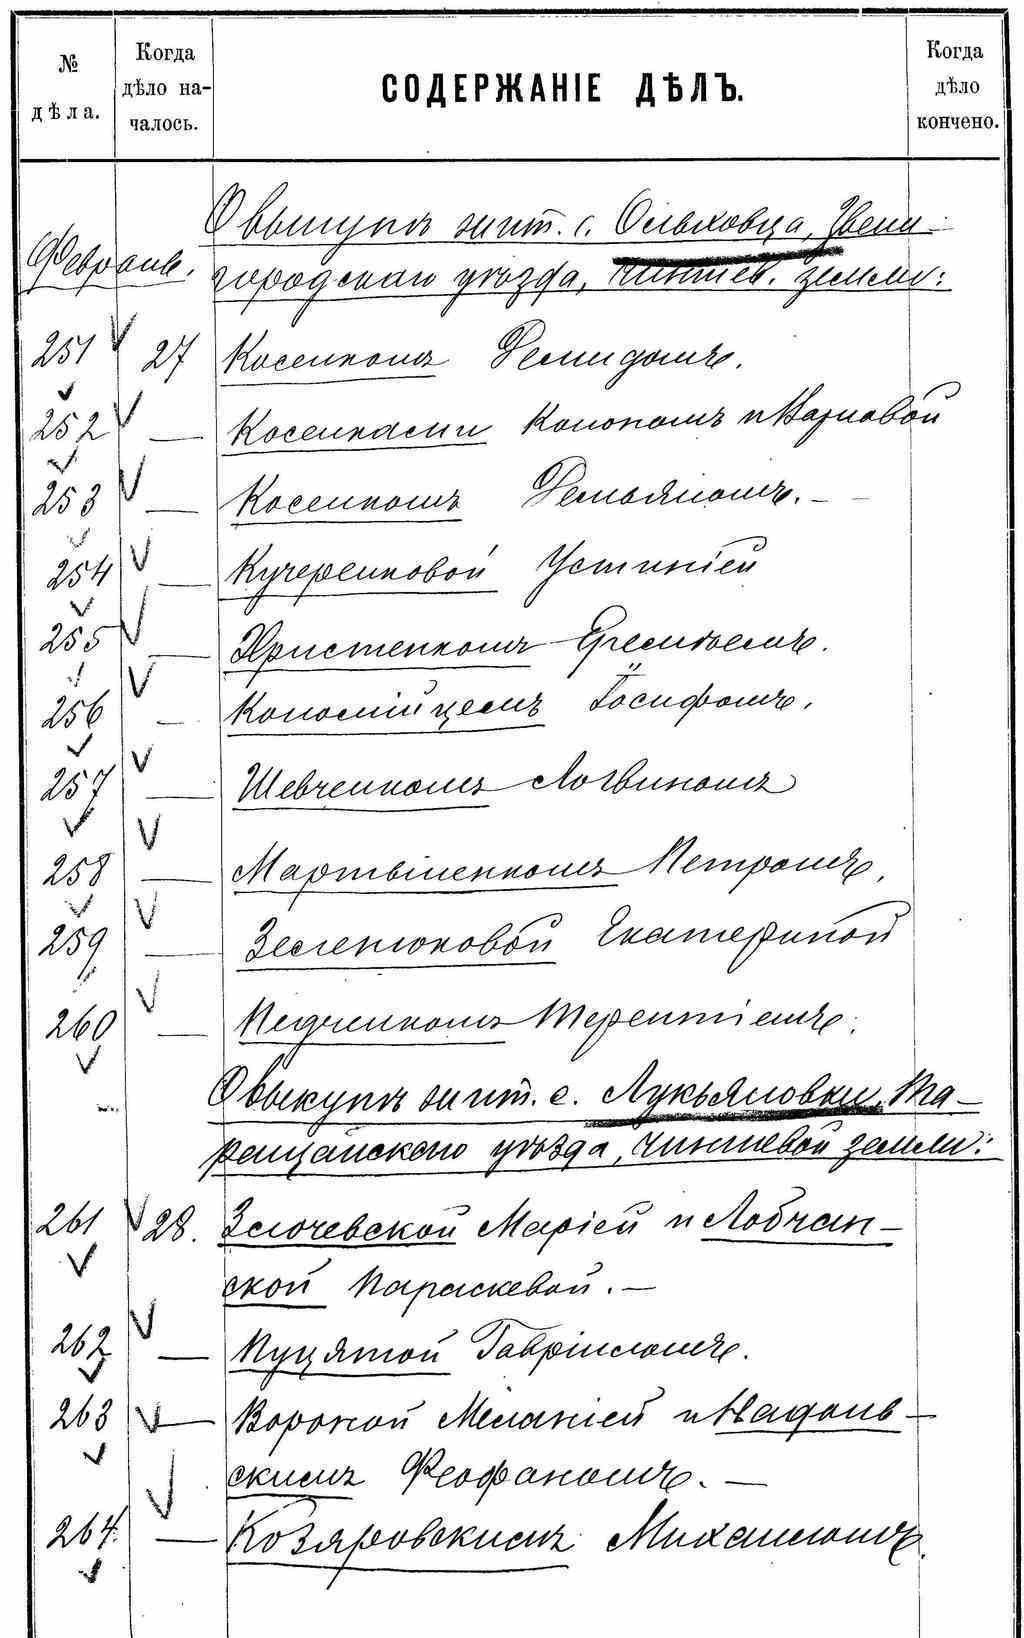 № дѣла.
Когда дѣло на-чалось.
СОДЕРЖАНІЕ ДѢЛЪ.
Когда дѣло кончено.
О выкупѣ жит. с. Ольховца, Звени-
Февраль.
городскаго уѣзда, чиншев. земли:
251 27 Косенкомъ Демидомъ.
252 — Косенками Конономъ и
253 — Косенкомъ Демьяномъ. —
254 — Кучеренковой Устиніей
255 — Христенкомъ Еремѣемъ.
256 — Коломійцемъ Іосифомъ.
257 — Шевченкомъ Логвиномъ
258 — Мартыненкомъ Петромъ.
259 — Зеленюковой Екатериной
260 — Педченкомъ Терентіемъ.
О выкупѣ жит. с. Лукьяновки, Та-
ращанскаго уѣзда, чиншевой земли:
261 28. Злочевской Маріей и Лобчан-
ской Параскевой. —
262 — Пуцятой Гавріиломъ.
263 — Вороной Меланіей и Надоль-
скимъ Феофаномъ. —
264 — Козяровскимъ Михаиломъ.